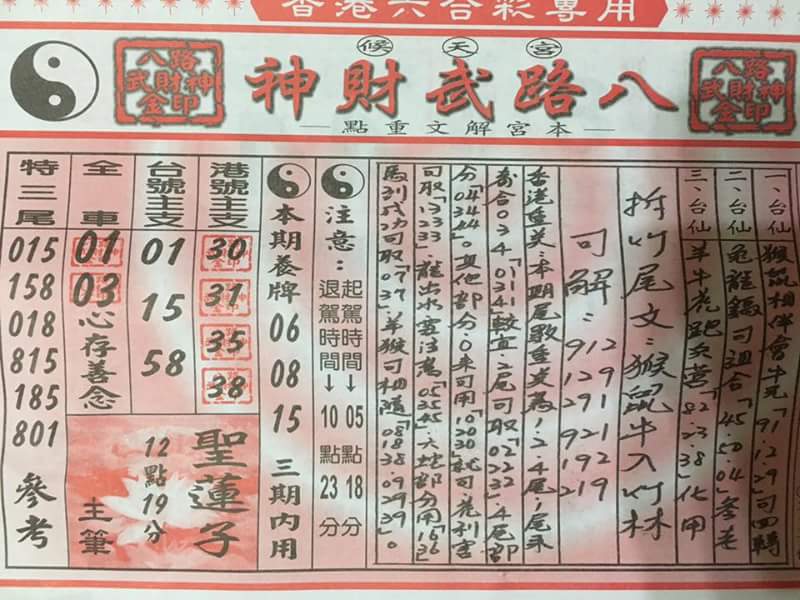 香港六合彩專用
宮天候
八路武財神
八路
武財神
金印
八路
武財神
金印
本宮解文重點
一、台仙
猴鼠相伴會牛兄「91.12.29」可四轉
二、台仙
龜龍鎮可適合「45.50.04」參考
三、台仙
羊牛虎跑「82.23.38」化用
拆竹尾文：猴鼠牛入竹林
可解：
912 921
129 192
291 219
香港重美：本期尾數重美為1.2.4尾，1尾來
奇合034「011/034」較宜。2尾可取「02232」4尾部
分「04/34/44」。其他部分：0來可用「102030」
可取「13/23/33」。龍出水要注為「05/25/45」六蛇部分用「16/36」
馬到成功可取「07/37」羊猴可相隨「08183809/29/39」。
注意：
起駕時間→05點18分
退駕時間→10點23分
本期養牌 06 08 15 三期內用
港號主支
30
31
35
38
台號主支
01
15
58
全車
01
03
心存善念
特三尾
015
158
018
815
185
801
參考
聖蓮子
12點19分
主筆